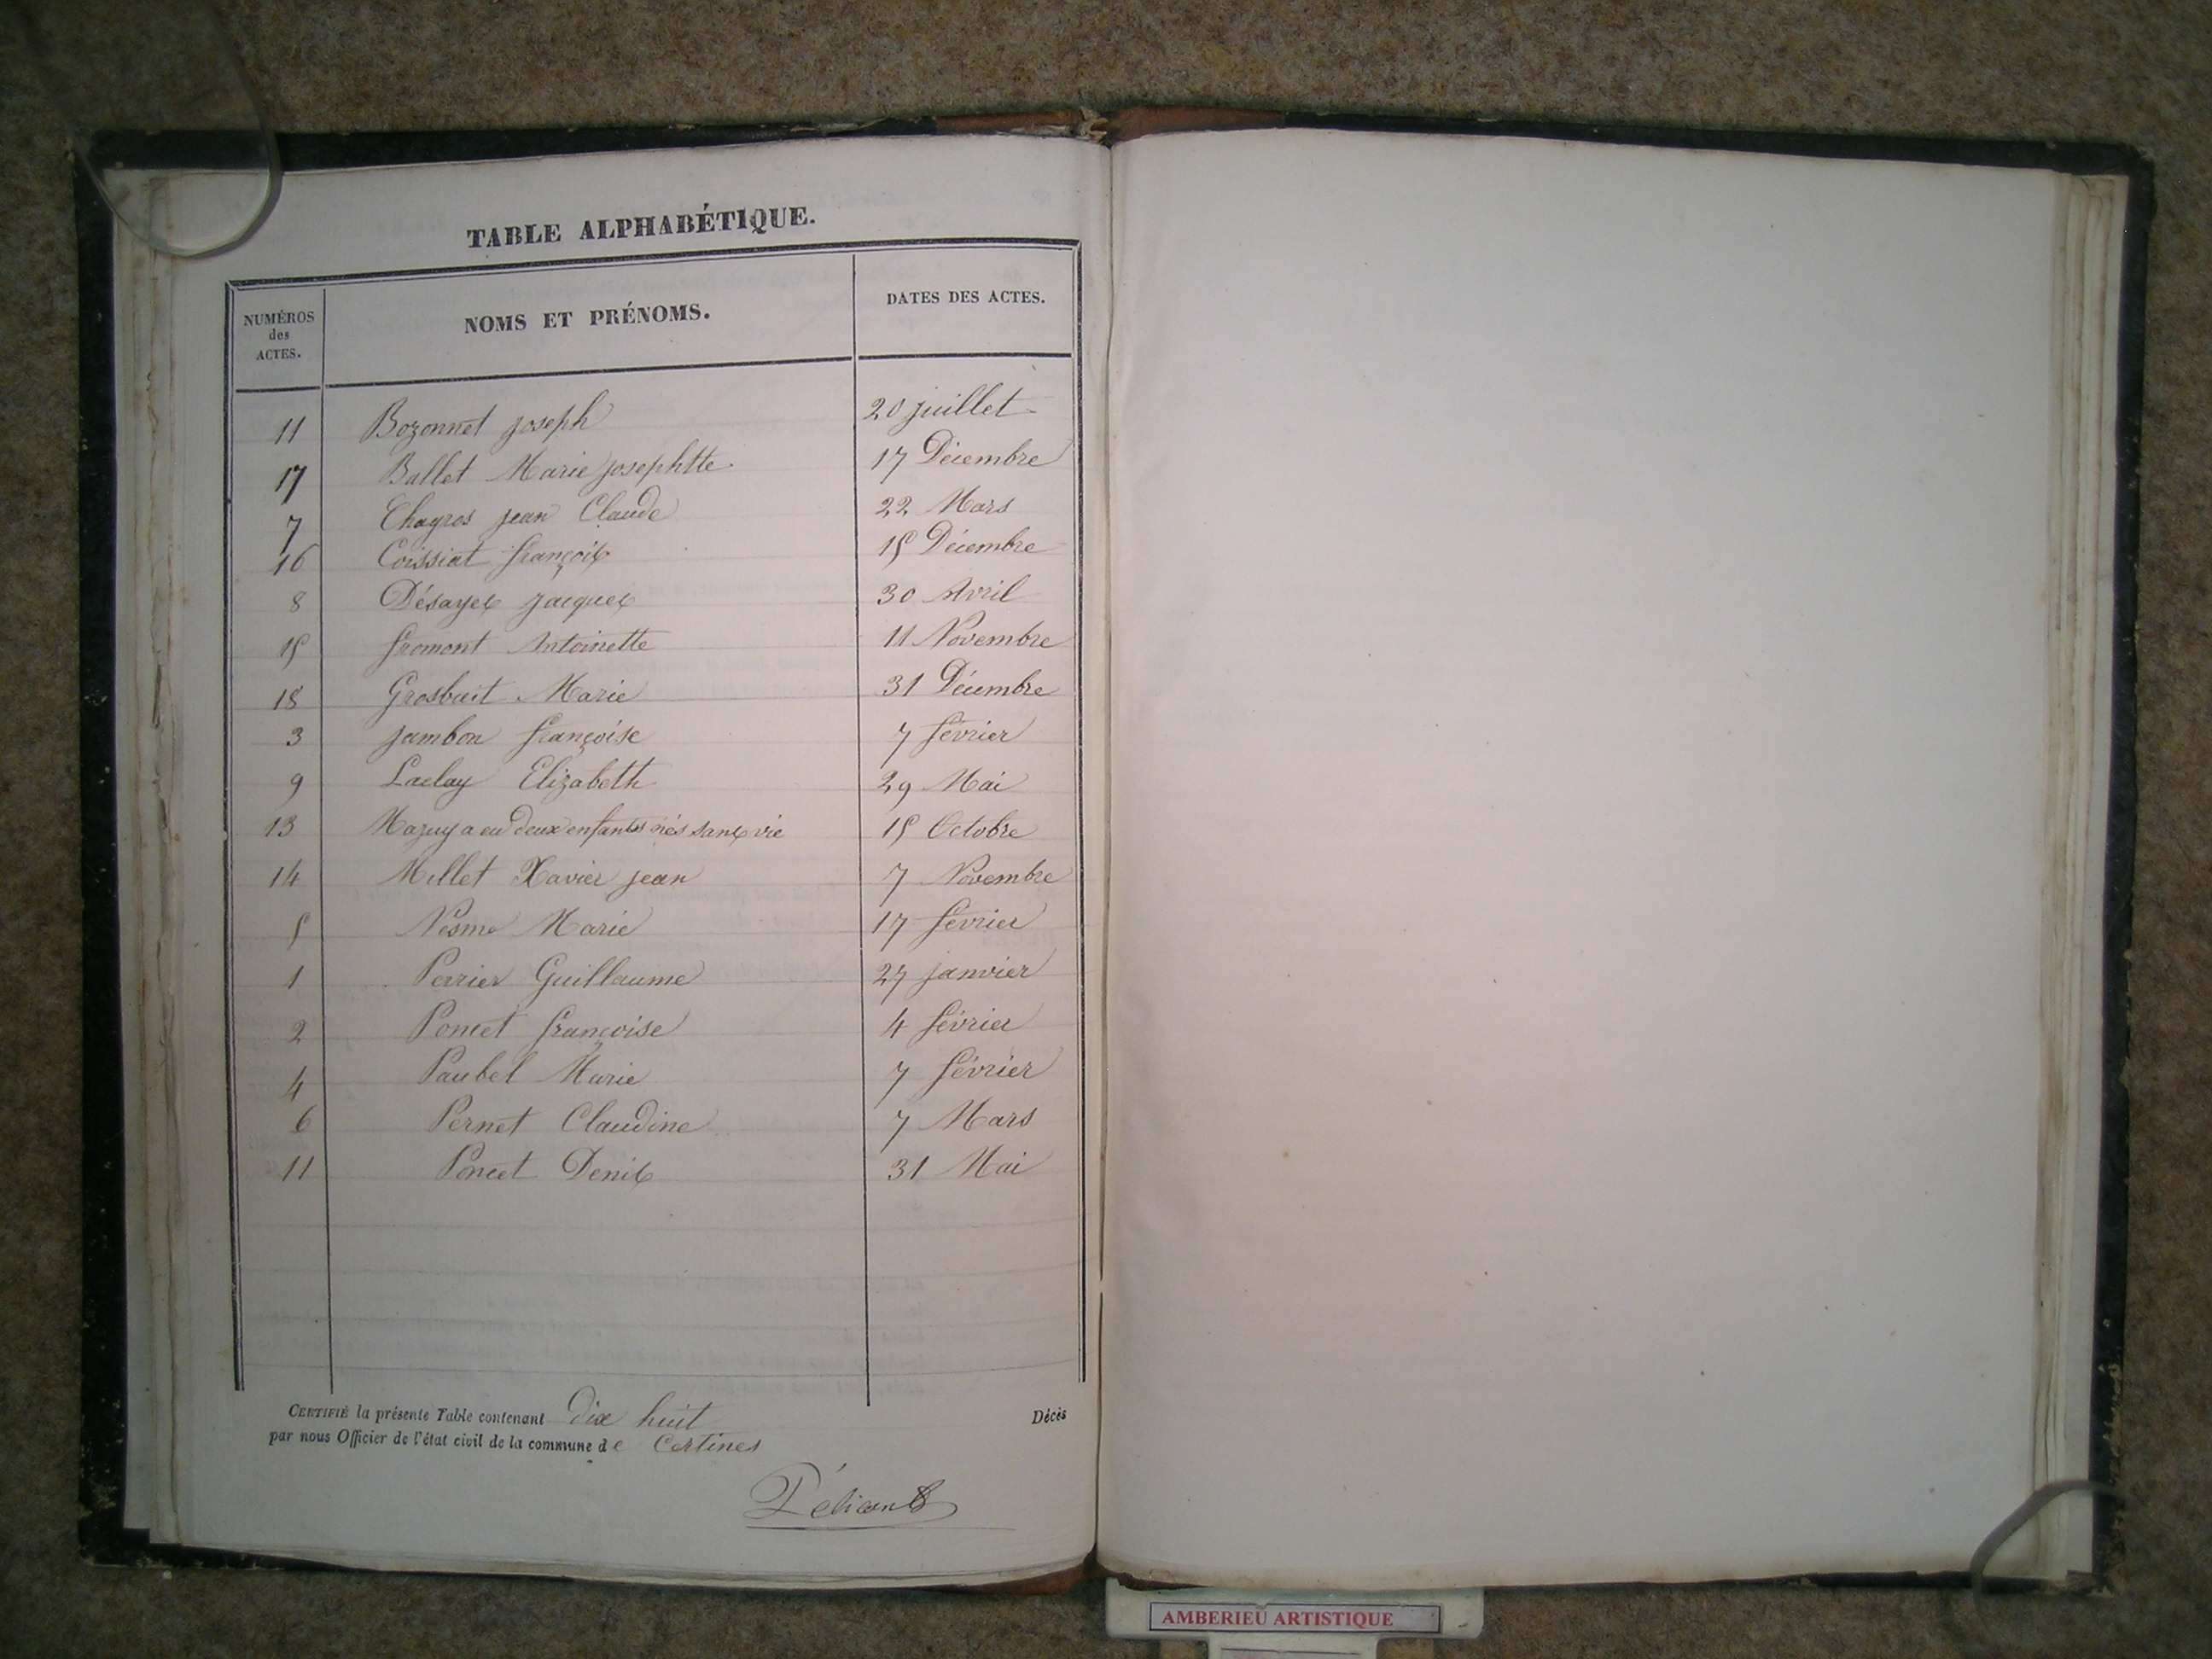 TABLE ALPHABÉTIQUE.
NUMÉROS des ACTES. NOMS ET PRÉNOMS. DATES DES ACTES.
11 Bozonnet joseph 20 juillet
17 Ballet Marie josephtte 17 Décembre
7 Chagros jean Claude 22 Mars
16 Coissiat françois 15 Décembre
8 Désayes jacques 30 Avril
15 fromont Antoinette 11 Novembre
18 Grosbuit Marie 31 Décembre
3 jambon françoise 7 février
9 Laclay Elizabeth 29 Mai
13 Mazuy a eu deux enfants nés sans vie 15 Octobre
14 Millet Xavier jean 7 Novembre
5 Nesme Marie 17 février
1 Perrier Guillaume 27 janvier
2 Poncet françoise 4 février
4 Paubel Marie 7 février
6 Pernet Claudine 7 Mars
11 Poncet Denis 31 Mai
CERTIFIÉ la présente Table contenant dix huit Décès
par nous Officier de l'état civil de la commune de Certines
AMBERIEU ARTISTIQUE